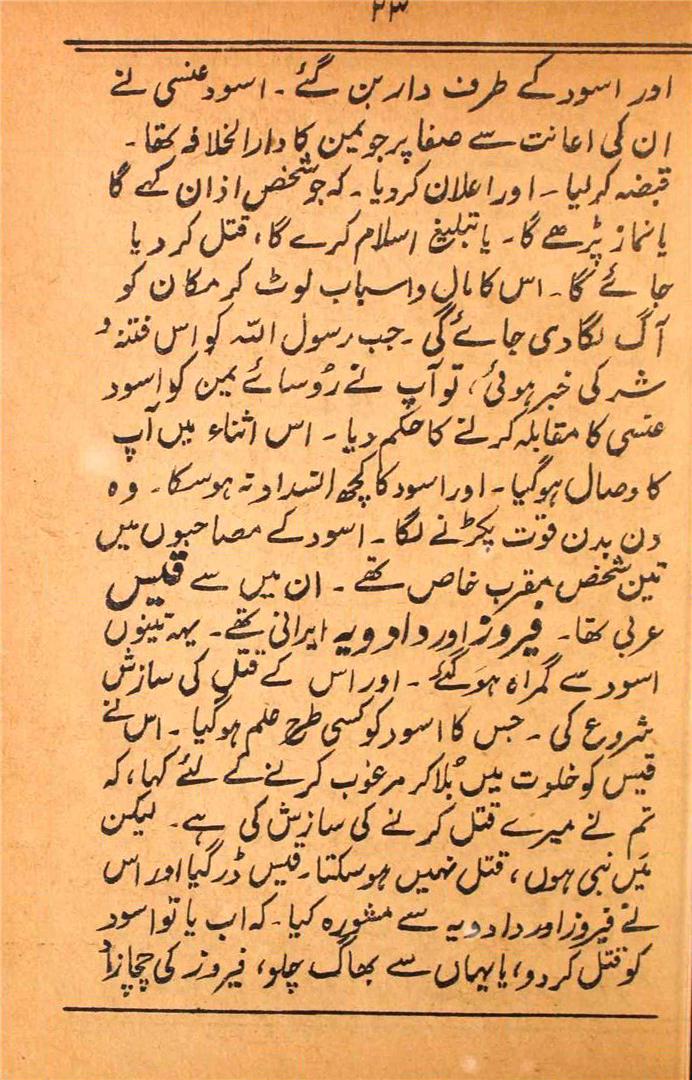 ۲۳
اور اسود کے طرف دار بن گئے ۔ اسود عنسی نے
ان کی اعانت سے صفا پر جو یمن کا دارالخلافہ تھا ۔
قبضہ کر لیا ۔ اور اعلان کر دیا ۔ کہ جو شخص اذان کہے گا
یا نماز پڑھے گا ۔ یا تبلیغ اسلام کرے گا ، قتل کر دیا
جائے گا ۔ اس کا مال و اسباب لوٹ کر مکان کو
آگ لگا دی جائے گی ۔ جب رسول اللہ کو اس فتنہ و
شر کی خبر ہوئی ، تو آپ نے رُوسائے یمن کو اسود
عنسی کا مقابلہ کرنے کا حکم دیا ۔ اس اثناء میں آپ
کا وصال ہو گیا ۔ اور اسود کا کچھ انسداد نہ ہو سکا ۔ وہ
دن بدن قوت پکڑنے لگا ۔ اسود کے مصاحبوں میں
تین شخص مقرب خاص تھے ۔ ان میں سے قیس
عربی تھا ۔ فیروز اور دادویہ ایرانی تھے ۔ یہہ تینوں
اسود سے گمراہ ہو گئے ۔ اور اس کے قتل کی سازش
شروع کی ۔ جس کا اسود کو کسی طرح علم ہو گیا ۔ اس نے
قیس کو خلوت میں بُلا کر مرعوب کرنے کے لئے کہا ، کہ
تم نے میرے قتل کرنے کی سازش کی ہے ۔ لیکن
مَیں نبی ہوں ، قتل نہیں ہو سکتا ۔ قیس ڈر گیا اور اس
نے فیروز اور دادویہ سے مشورہ کیا ۔ کہ اب یا تو اسود
کو قتل کر دو ، یا یہاں سے بھاگ چلو ، فیروز کی چچازاد